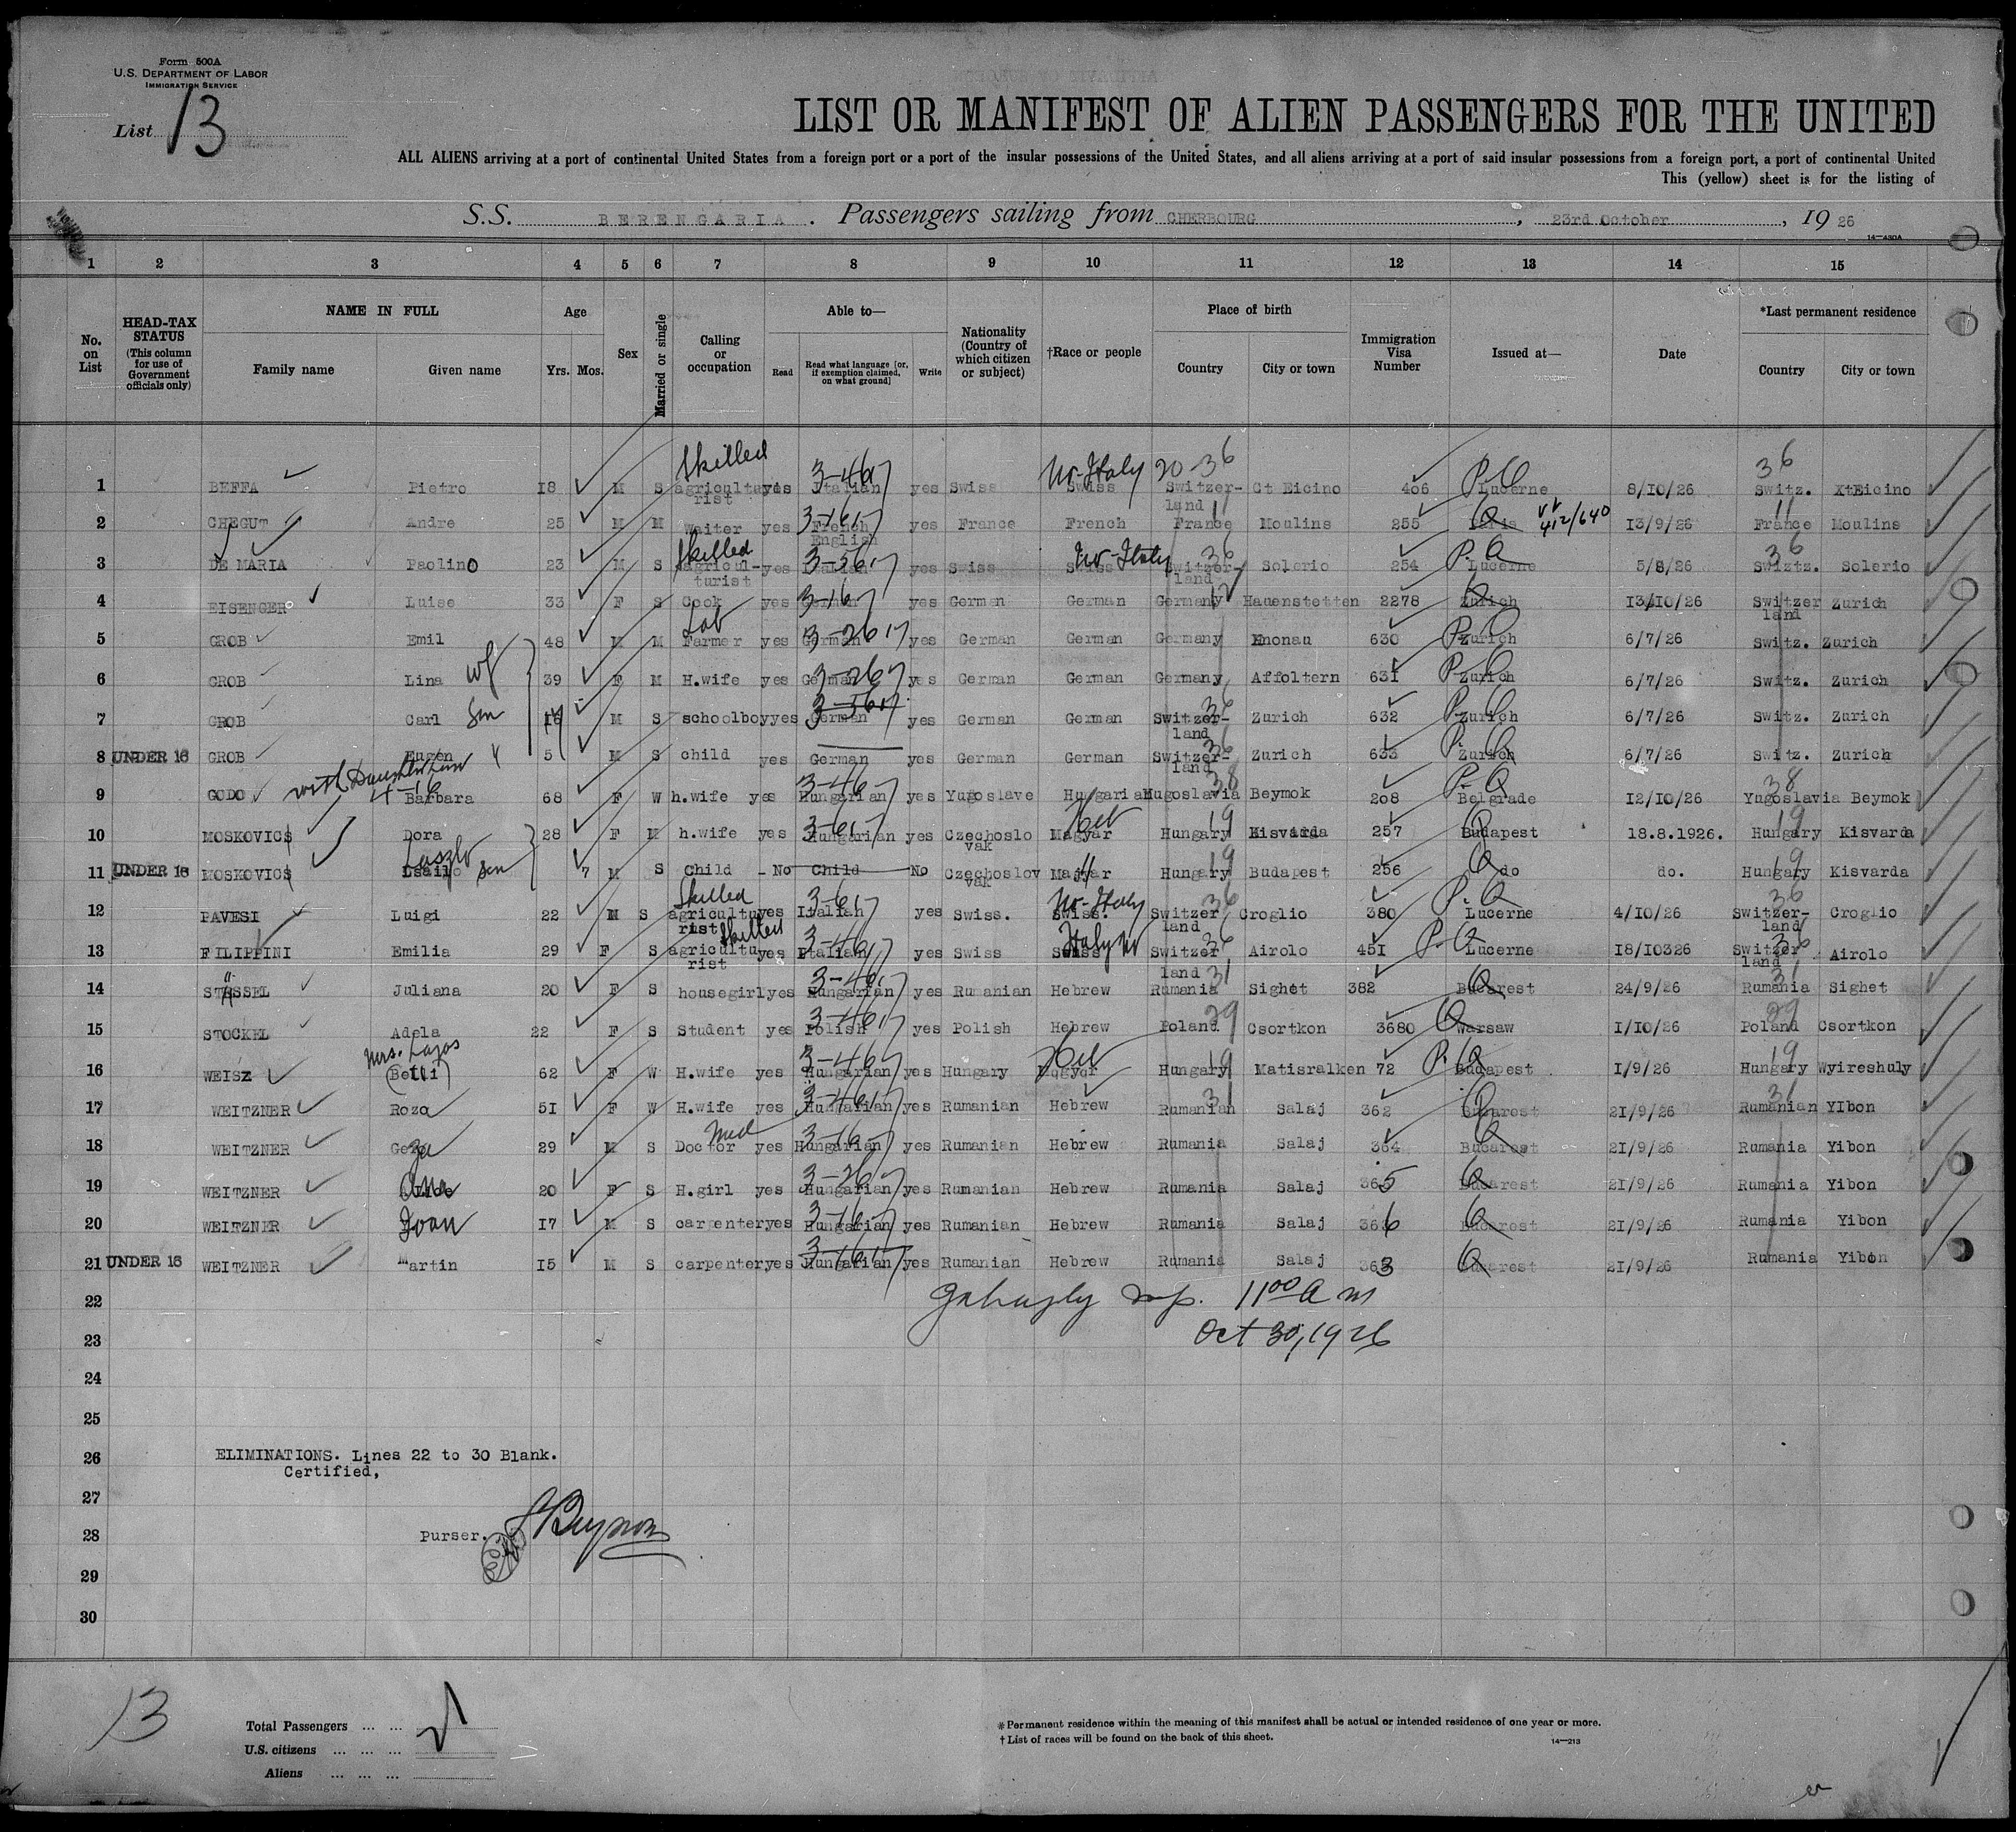 Form 500A
U.S. DEPARTMENT OF LABOR
IMMIGRATION SERVICE
List 13
LIST OR MANIFEST OF ALIEN PASSENGERS FOR THE UNITED
ALL ALIENS arriving at a port of continental United States from a foreign port or a port of the insular possessions of the United States, and all aliens arriving at a port of said insular possessions from a foreign port, a port of continental United
This (yellow) sheet is for the listing of
S.S. BERENGARIA. Passengers sailing from CHERBOURG, 23rd October, 1926
14—430A
1 2 3 4 5 6 7 8 9 10 11 12 13 14 15
No. on List
HEAD-TAX STATUS (This column for use of Government officials only)
NAME IN FULL
Family name Given name
Age
Yrs. Mos.
Sex
Married or single
Calling or occupation
Able to—
Read
Read what language [or, if exemption claimed, on what ground]
Write
Nationality (Country of which citizen or subject)
†Race or people
Place of birth
Country City or town
Immigration Visa Number
Issued at—
Date
*Last permanent residence
Country City or town
Skilled 3-4617 No-Italy 20-36 P.Q 36
1 BEFFA Pietro 18 M S agricultu yes Italian yes Swiss Swiss Switzer- Ct Eicino 406 Lucerne 8/10/26 Switz. XtEicino
rist land
3-1617 11 Q 412/640 11
2 CHEGUT Andre 25 M M Waiter yes French yes France French France Moulins 255 13/9/26 France Moulins
English
Skilled 3-5617 No-Italy 36 P.Q 36
3 DE MARIA Paolino 23 M S agricul- yes Italian yes Swiss Swiss Switzer- Solerio 254 Lucerne 5/8/26 Swiztz. Solerio
turist land
3-167 Q
4 EISENGER Luise 33 F S Cook yes German yes German German Germany Hauenstetten 2278 Zurich 13/10/26 Switzer Zurich
land
Lab 3-2617 P.Q
5 GROB Emil 48 M M Farmer yes German yes German German Germany Knonau 630 Zurich 6/7/26 Switz. Zurich
6 GROB Lina wf 39 F M H.wife yes German 3-267 yes German German Germany Affoltern 631 P.Q Zurich 6/7/26 Switz. Zurich
7 GROB Carl Son 16 M S schoolboy yes German yes German German Switzer- Zurich 632 P.Q Zurich 6/7/26 Switz. Zurich
land
8 UNDER 16 GROB Eugen " 5 M S child yes German yes German German Switzer- Zurich 633 P.Q Zurich 6/7/26 Switz. Zurich
land
with Daughter
4-16 3-467 38 P.Q 38
9 GODO Barbara 68 F W h.wife yes Hungarian yes Yugoslave Hungarian Yugoslavia Beymok 208 Belgrade 12/10/26 Yugoslavia Beymok
3-617 Heb 19 Q 19
10 MOSKOVICS Dora 28 F M h.wife yes Hungarian yes Czechoslo Magyar Hungary Kisvarda 257 Budapest 18.8.1926. Hungary Kisvarda
vak
Laszlo
11 UNDER 16 MOSKOVICS Son 7 M S Child - No Child No Czechoslov Magyar Hungary 19 Budapest 256 Q do do. Hungary 19 Kisvarda
vak
Skilled 3-617 No-Italy 36 P.Q 36
12 PAVESI Luigi 22 M S agricultu yes Italian yes Swiss. Swiss. Switzer Croglio 380 Lucerne 4/10/26 Switzer- Croglio
rist land land
Skilled 3-4617 Italy No 36 P.Q 36
13 FILIPPINI Emilia 29 F S agricultu yes Italian yes Swiss Swiss Switzer Airolo 451 Lucerne 18/10326 Switzer Airolo
rist land land
3-4617 31 31
14 STÄSSEL Juliana 20 F S housegirl yes Hungarian yes Rumanian Hebrew Rumania Sighet 382 Q Bucarest 24/9/26 Rumania Sighet
3-4617 29 29
15 STOCKEL Adela 22 F S Student yes Polish yes Polish Hebrew Poland Csortkon 3680 Q Warsaw 1/10/26 Poland Csortkon
Mrs. Lajos
3-467 Heb 19 P.Q 19
16 WEISZ (Betti) 62 F W H.wife yes Hungarian yes Hungary Magyar Hungary Matisralken 72 Budapest 1/9/26 Hungary Wyireshuly
3-4617 31 Q 31
17 WEITZNER Roza 51 F W H.wife yes Hungarian yes Rumanian Hebrew Rumanian Salaj 362 Bucarest 21/9/26 Rumanian YIbon
Med 3-167
18 WEITZNER Geza 29 M S Doctor yes Hungarian yes Rumanian Hebrew Rumania Salaj 364 Q Bucarest 21/9/26 Rumania Yibon
3-267
19 WEITZNER 20 F S H.girl yes Hungarian yes Rumanian Hebrew Rumania Salaj 365 Q Bucarest 21/9/26 Rumania Yibon
3-167
20 WEITZNER Ivan 17 M S carpenter yes Hungarian yes Rumanian Hebrew Rumania Salaj 366 Q Bucarest 21/9/26 Rumania Yibon
3-1617
21 UNDER 16 WEITZNER Martin 15 M S carpenter yes Hungarian yes Rumanian Hebrew Rumania Salaj 363 Q Bucarest 21/9/26 Rumania Yibon
22 11 00 A m
23 Oct 30, 1926
24
25
26 ELIMINATIONS. Lines 22 to 30 Blank.
Certified,
27
28 purser.
29
30
13
Total Passengers ... ...
U.S. citizens ... ... ...
Aliens ... ... ...
*Permanent residence within the meaning of this manifest shall be actual or intended residence of one year or more.
†List of races will be found on the back of this sheet.
14—213